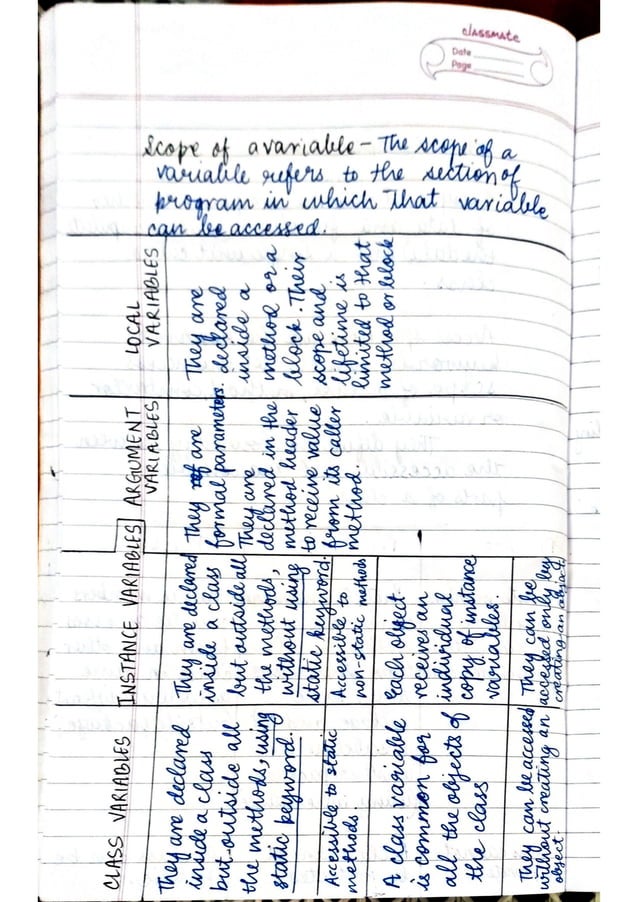 classmate
Date
Page
Scope of a variable - The scope of a
variable refers to the section of
program in which that variable
can be accessed.
CLASS VARIABLES
They are declared
inside a class
but outside all
the methods, using
static keyword.
Accessible to static
methods
A class variable
is common for
all the objects of
the class
They can be accessed
without creating an
object.
INSTANCE VARIABLES
They are declared
inside a class
but outside all
the methods,
without using
static keyword.
Accessible to
non-static methods
Each object
receives an
individual
copy of instance
variables.
They can be
accessed only by
creating an object
ARGUMENT
VARIABLES
They are
formal parameters.
They are
declared in the
method header
to receive value
from its caller
method.
LOCAL
VARIABLES
They are
declared
inside a
method or a
block. Their
scope and
lifetime is
limited to that
method or block